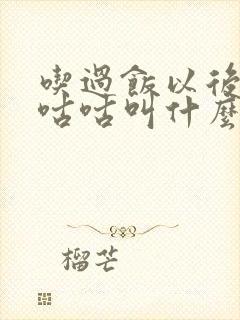 喫過飯以後
咕咕叫什麼
榴芒